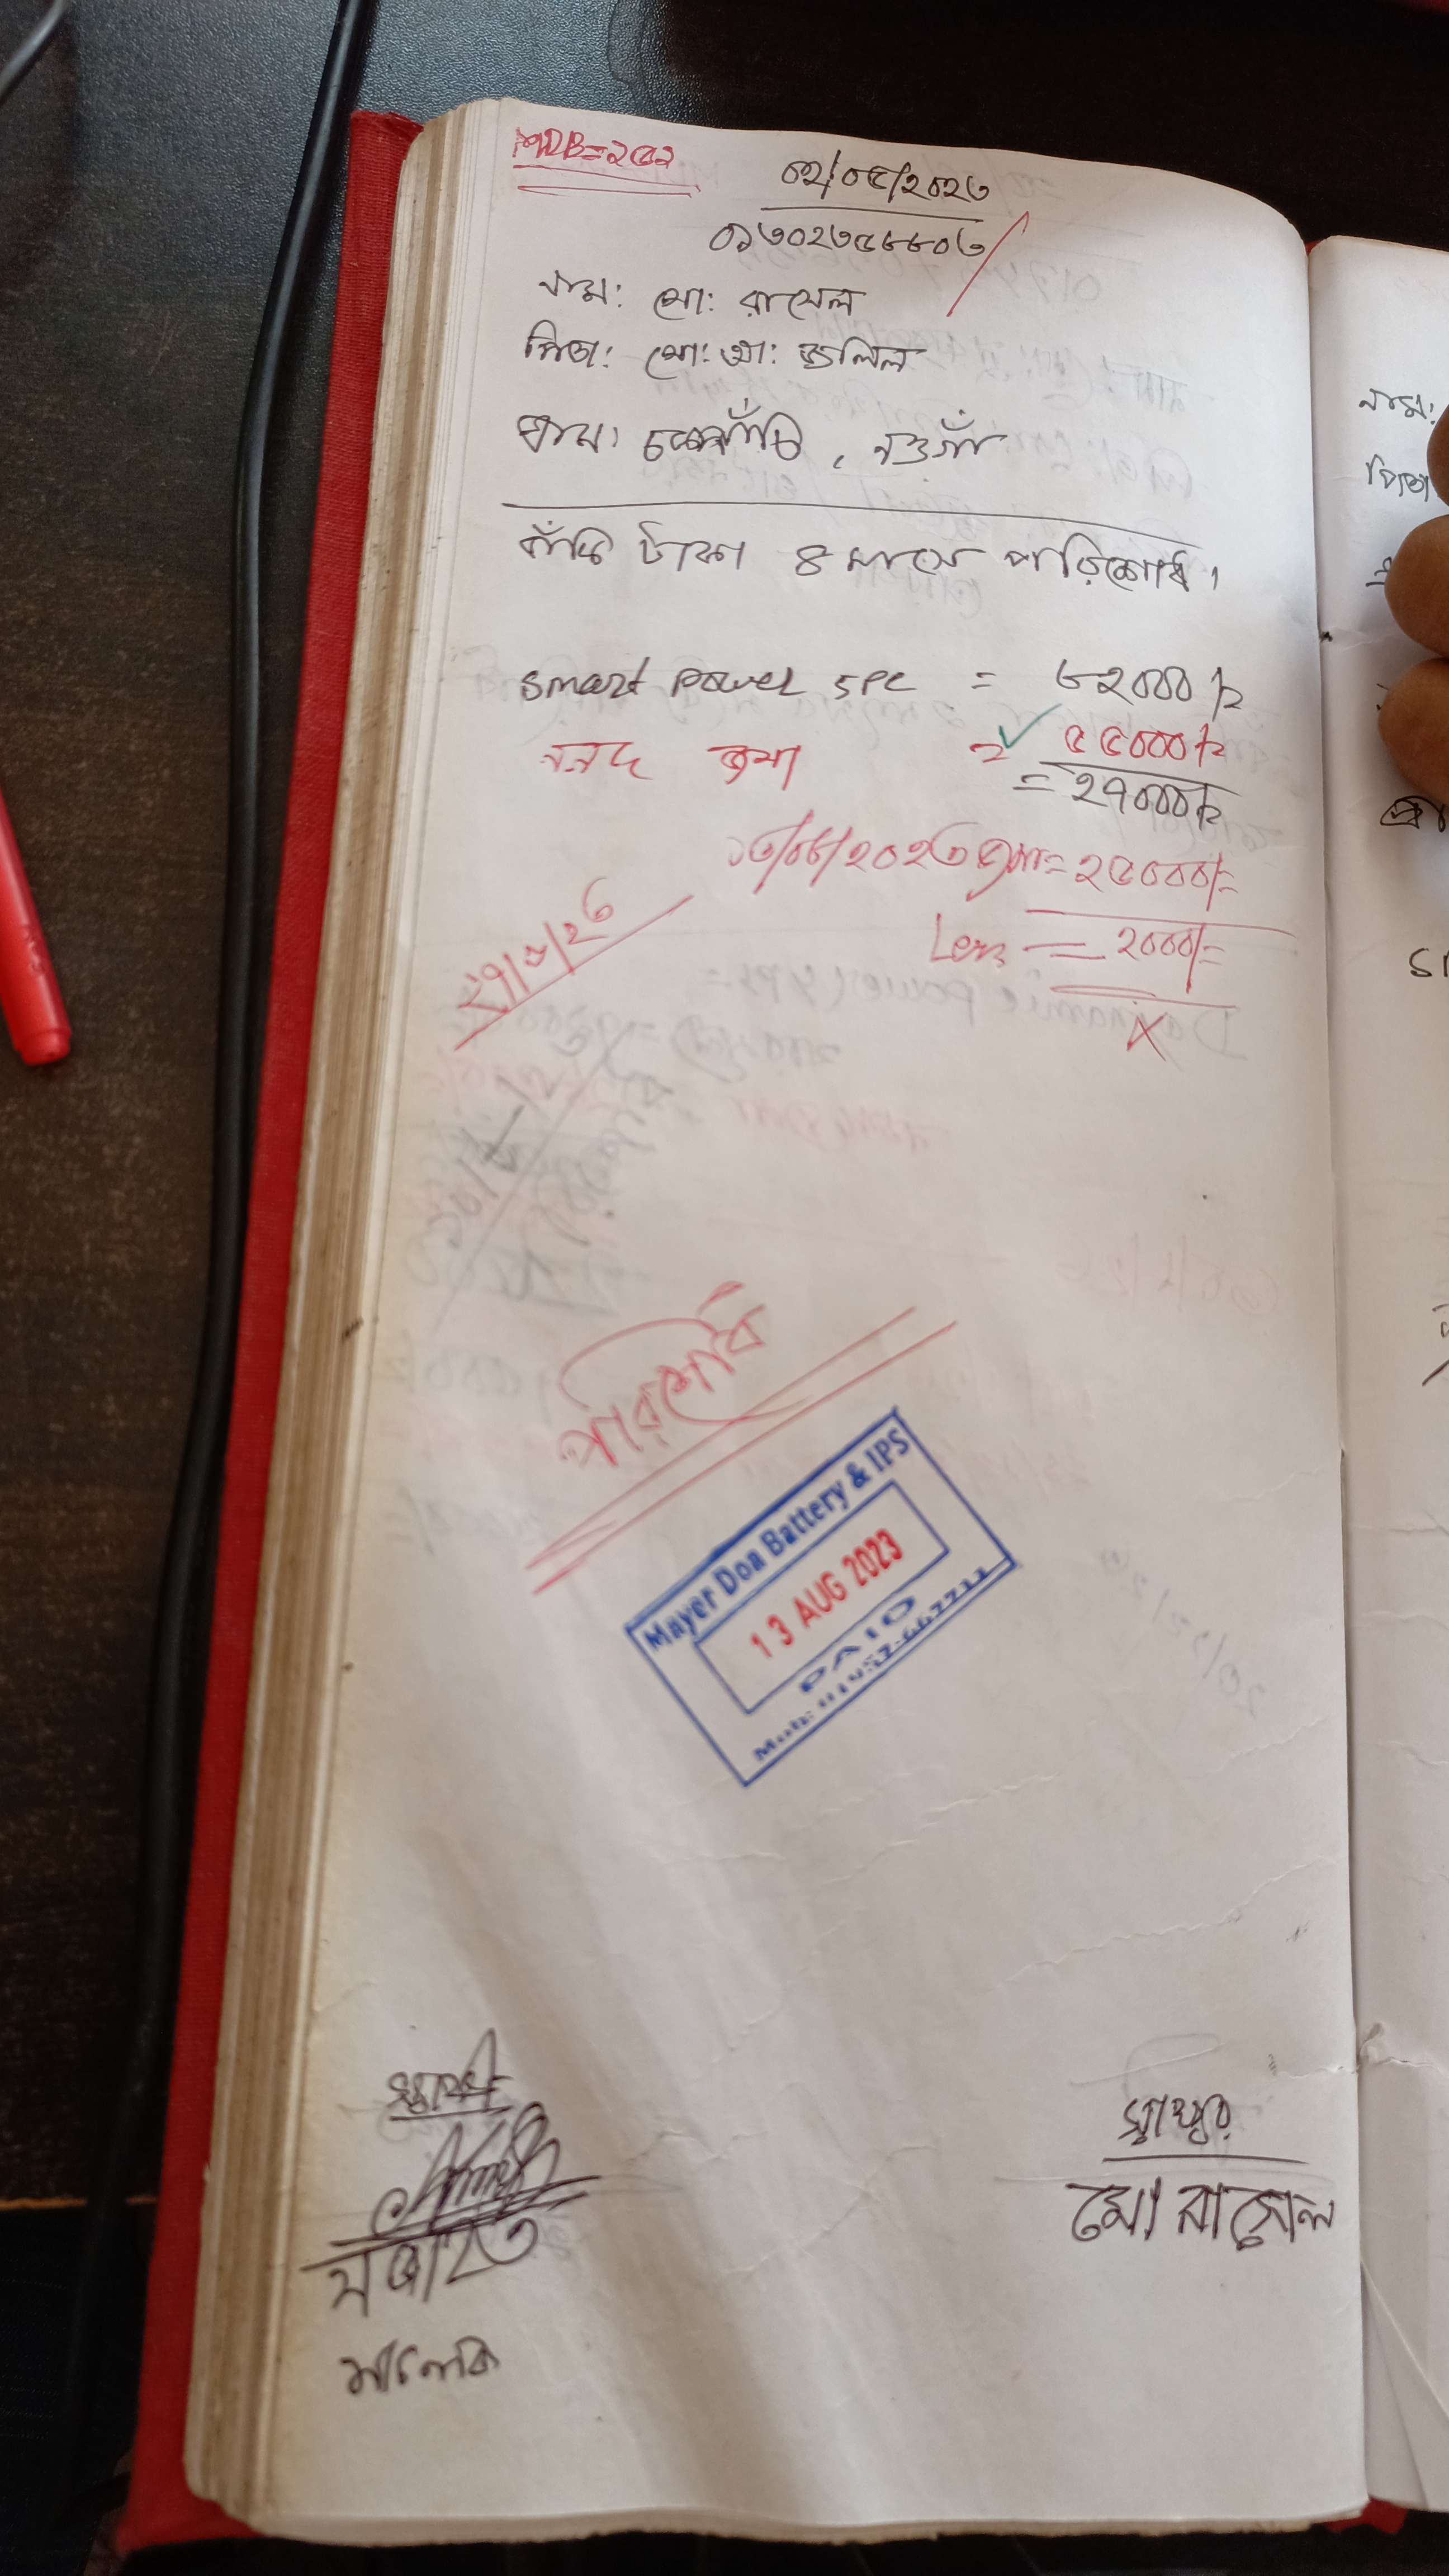 MDB=২৫২
০২/০৫/২০২৩
০১৩০২৩৫৮৮০৩
নাম: মো: রাসেল
পিতা: মো: আ: জলিল
গ্রাম: , নওগাঁ
বাঁকি টাকা ৪ মাসে পরিশোধ।
Smart Power 5Pc = ৮২০০০/=
নগদ জমা = ৫৫০০০/=
= ২৭০০০/=
১৩/০৮/২০২৩ জমা= ২৫০০০/=
Less = ২০০০/=
X
২৭/৮/২৩
পরিশোধ
Mayer Doa Battery & IPS
13 AUG 2023
PAID
স্বাক্ষর
মো রাসেল
মালেক
নাম:
পিতা